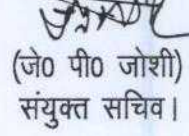 (जे0 पी0 जोशी)
संयुक्त सचिव।